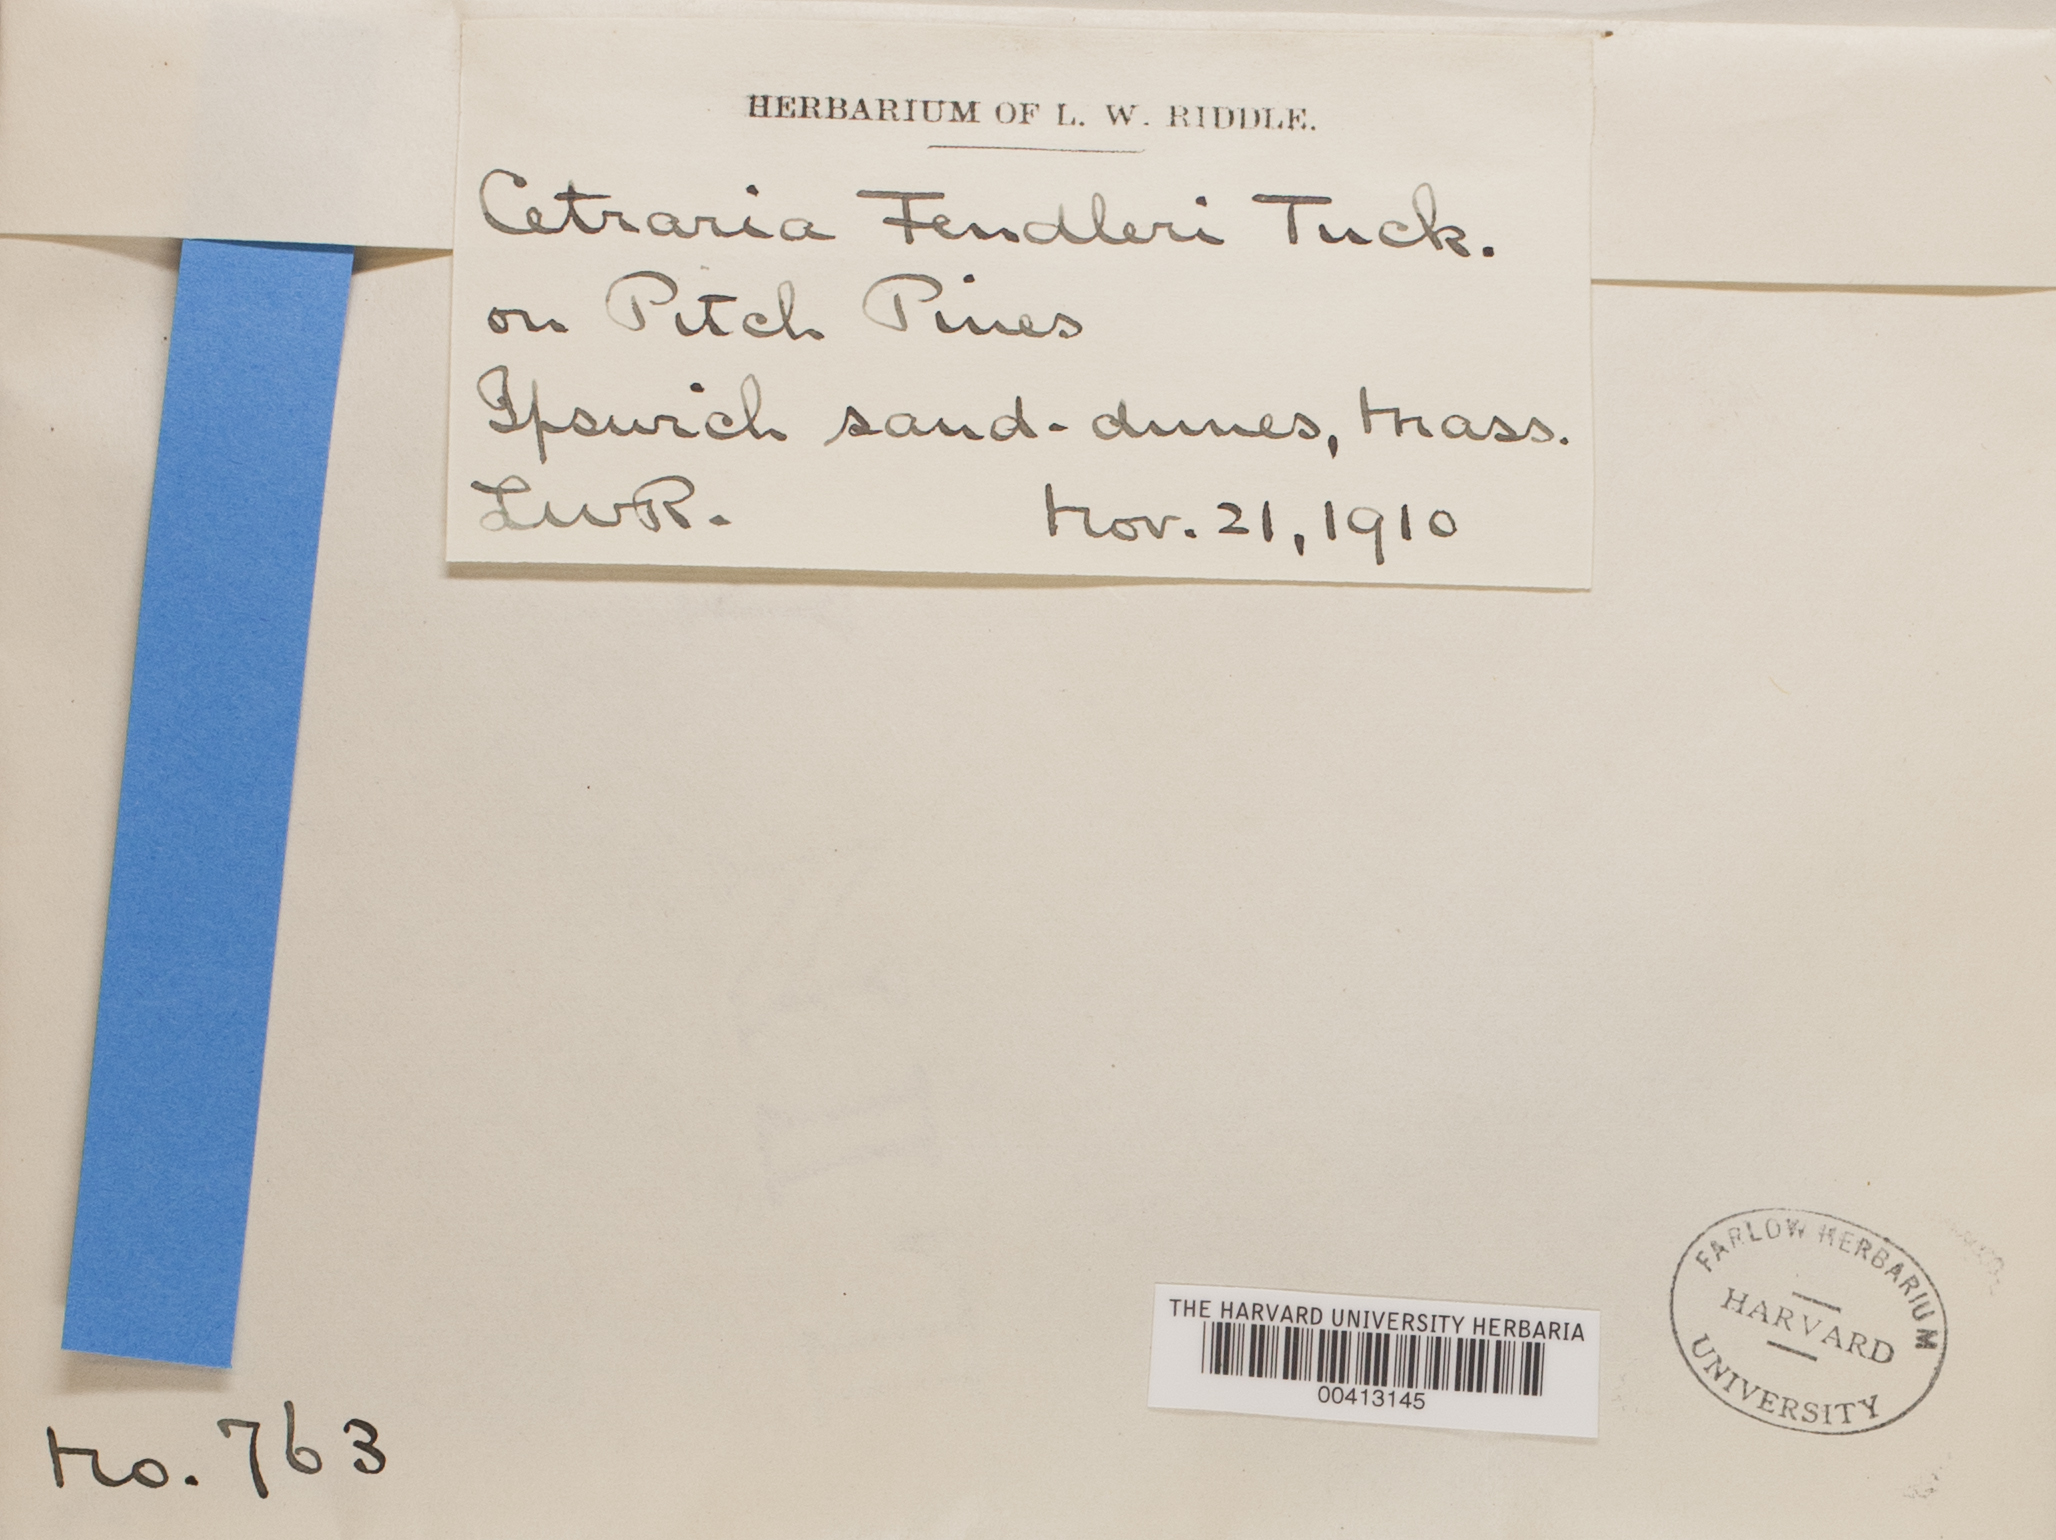 HERBARIUM OF L. W. RIDDLE.
Cetraria Fendleri Tuck.
on Pitch Pines
Ipswich sand-dunes, Mass.
LWR. Nov. 21, 1910
THE HARVARD UNIVERSITY HERBARIA
00413145
FARLOW HERBARIUM
HARVARD
UNIVERSITY
No. 763